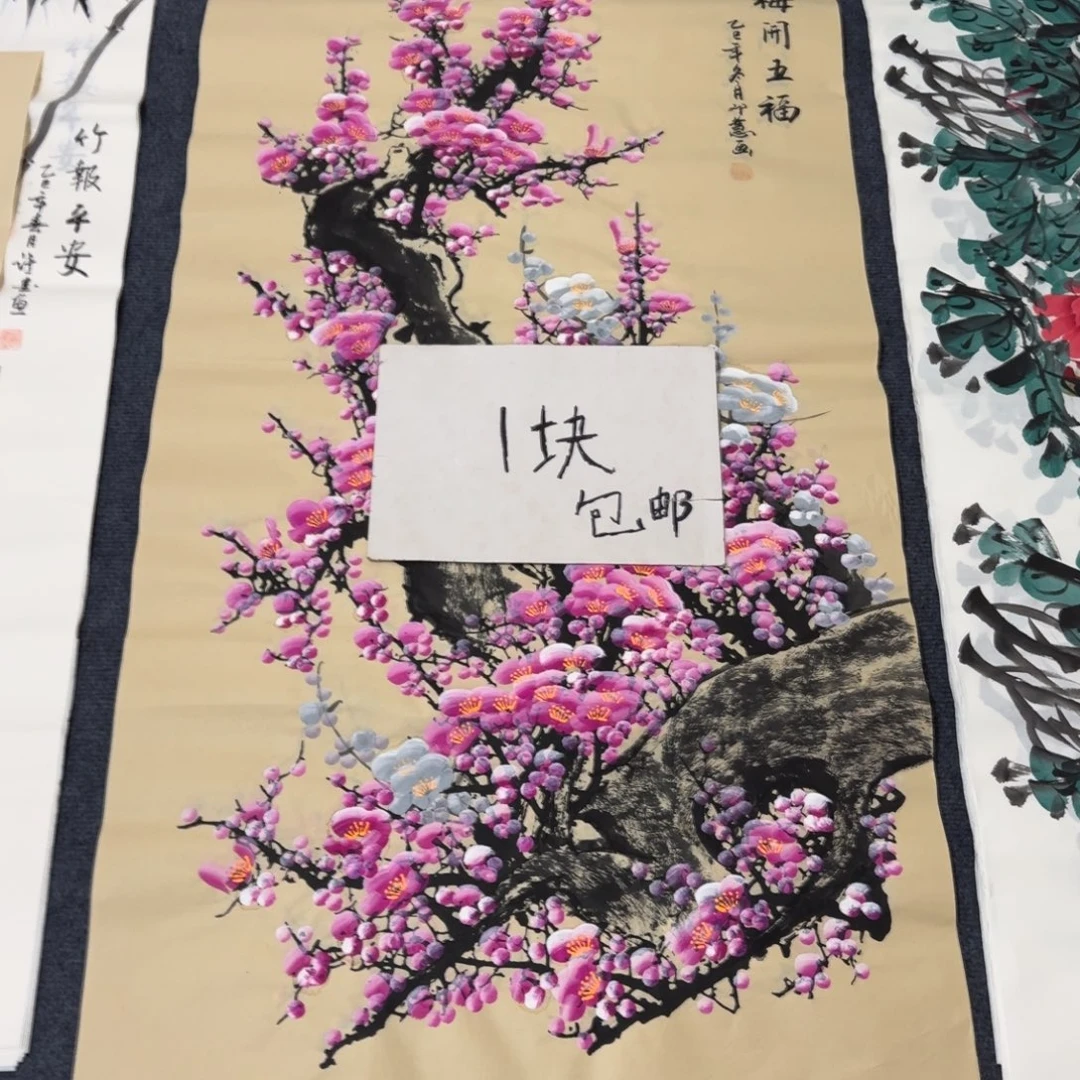 梅開五福
乙巳年冬月許慧画
1块
包邮
竹報平安
乙巳年春月許慧畫